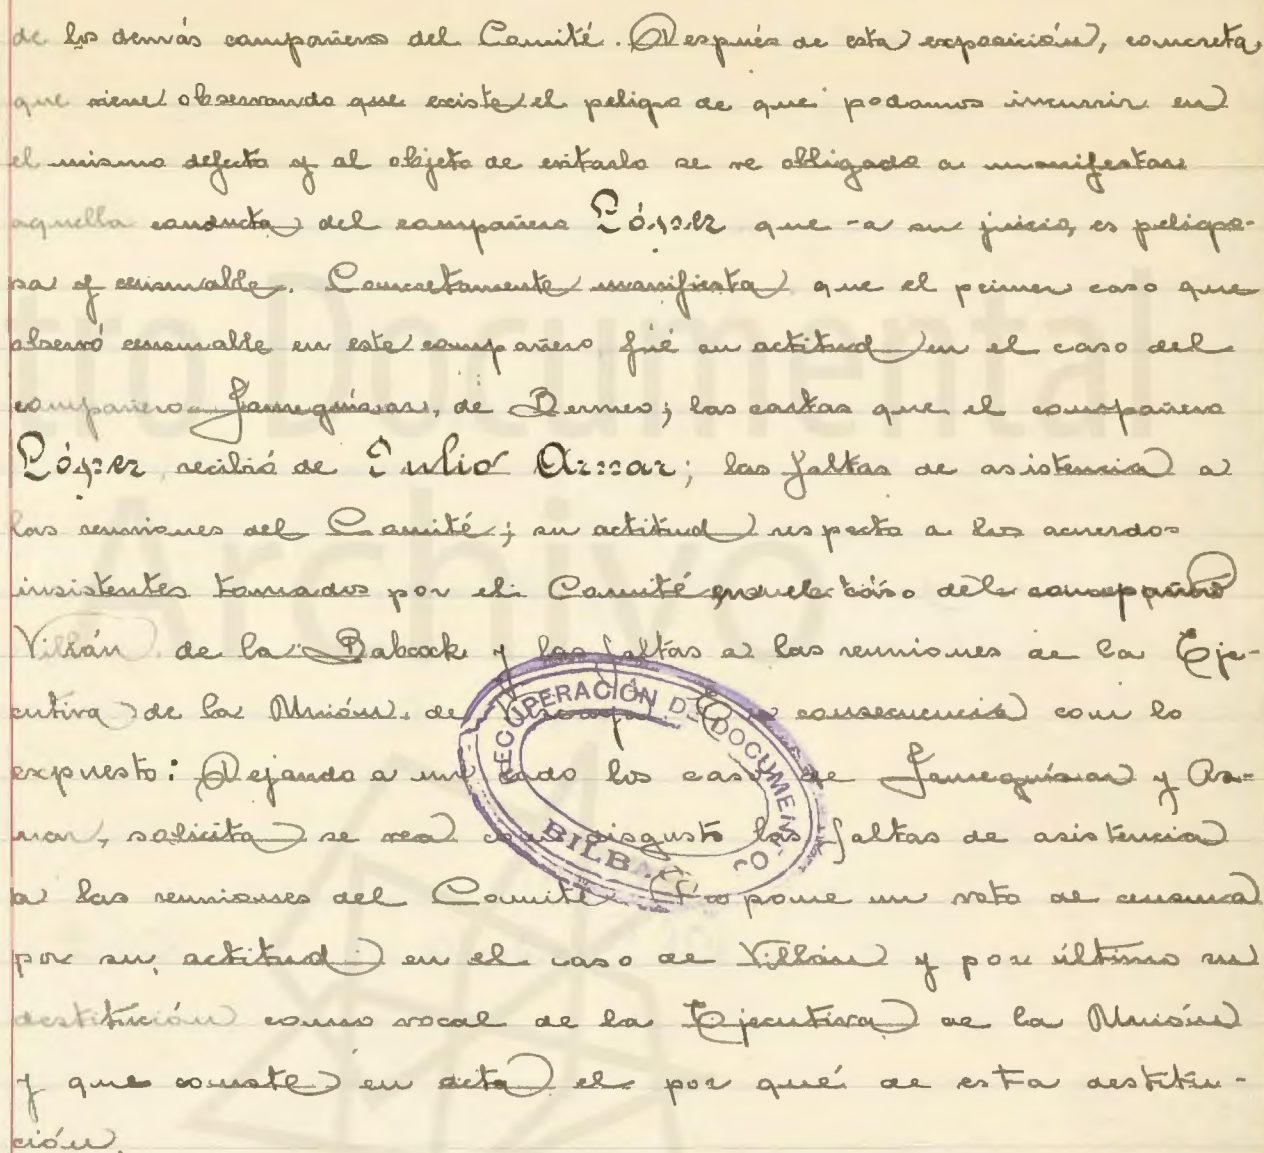 de los demás compañeros del Comité. Después de esta exposición, concreta,
que viene observando que existe el peligro de que podamos incurrir en
el mismo defecto y al objeto de evitarlo se ve obligado a manifestar
aquella conducta del compañero López que -a su juicio, es peligro-
sa y censurable. Concretamente manifiesta que el primer caso que
observó censurable en este compañero fué su actitud en el caso del
compañero Jaureguízar, de Bermeo; las cartas que el compañero
López recibió de Julio Aznar; las faltas de asistencia a
las reuniones del Comité; su actitud respecto a los acuerdos
insistentes tomados por el Comité en el caso del compañero
Villán de la Babcock y las faltas a las reuniones de la Eje-
cutiva de la Unión de Vizcaya. En consecuencia con lo
expuesto: Dejando a un lado los casos de Jaureguízar y Az-
nar, solicita se vea con disgusto las faltas de asistencia
a las reuniones del Comité. Propone un voto de censura
por su actitud en el caso de Villán y por último su
destitución como vocal de la Ejecutiva de la Unión
y que conste en acta el por qué de esta destitu-
ción.
RECUPERACIÓN DE DOCUMENTOS
BILBAO
tro Documental
Archivo